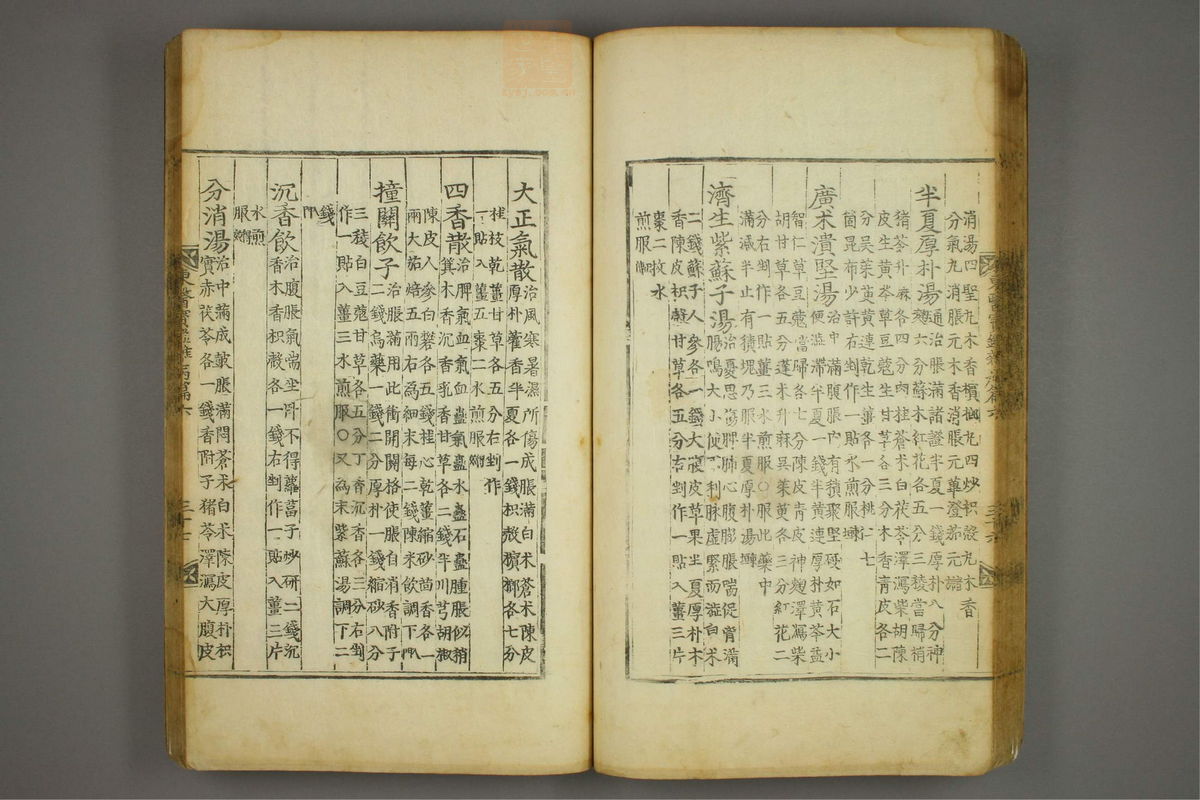 消湯四聖丸木香檳榔丸四炒枳殼丸木香
分氣丸消脹元木香消脹元蓽澄茄元
半夏厚朴湯
通治脹滿諸證半夏一錢厚朴八分神
麴六分蘇木紅花各五分三稜當歸梢
猪苓升麻各四分肉桂蒼朮白茯苓澤瀉柴胡陳
皮生黃芩草豆蔻生甘草各三分木香靑皮各二
分吳茱萸黃連乾生薑各一分桃仁七
箇昆布少許右剉作一貼水煎服東垣
廣朮潰堅湯
治中滿腹脹內有積聚堅硬如石大小
便澁滯半夏一錢半黃連厚朴黃芩益
智仁草豆蔻當歸各七分陳皮靑皮神麴澤瀉柴
胡甘草各五分蓬朮升麻吳茱萸各三分紅花二
分右剉作一貼薑三水煎服○服此藥中
滿減半止有積塊乃服半夏厚朴湯東垣
濟生紫蘇子湯
治憂思傷脾肺心腹膨脹喘促胷滿
腸鳴大小便不利脉虛緊而澁白朮
二錢蘇子人參各一錢大腹皮草果半夏厚朴木
香陳皮枳殼甘草各五分右剉作一貼入薑三片
棗二枚水
煎服得效
大正氣散
治風寒暑濕所傷成脹滿白朮蒼朮陳皮
厚朴藿香半夏各一錢枳殼檳榔各七分
桂枝乾薑甘草各五分右剉作
一貼入薑五棗二水煎服
四香散
治脾氣血氣血蠱氣蠱水蠱石蠱腫脹似箕
箕木香沉香乳香甘草各二錢半川芎胡椒
陳皮人參白礬各五錢桂心乾薑縮砂茴香各一
兩大茄焙五兩右爲細末每二錢陳米飮調下
撞關飮子
治脹滿用此衝開關格使脹自消香附子
二錢烏藥一錢二分厚朴一錢縮砂八分
三稜白豆蔻甘草各五分丁香沉香各三分右剉
作一貼入薑三水煎服○又爲末紫蘇湯調下二
錢
沉香飮
治腹脹氣喘坐臥不得蘿葍子炒硏二錢沉
香木香枳殼各一錢右剉作一貼入薑三片
水煎
服
分消湯
治中滿成鼓脹滿悶蒼朮白朮陳皮厚朴枳
實赤茯苓各一錢香附子猪苓澤瀉大腹皮
東醫寶鑑雜病篇六
三十六
東醫寶鑑雜病篇六
三十七